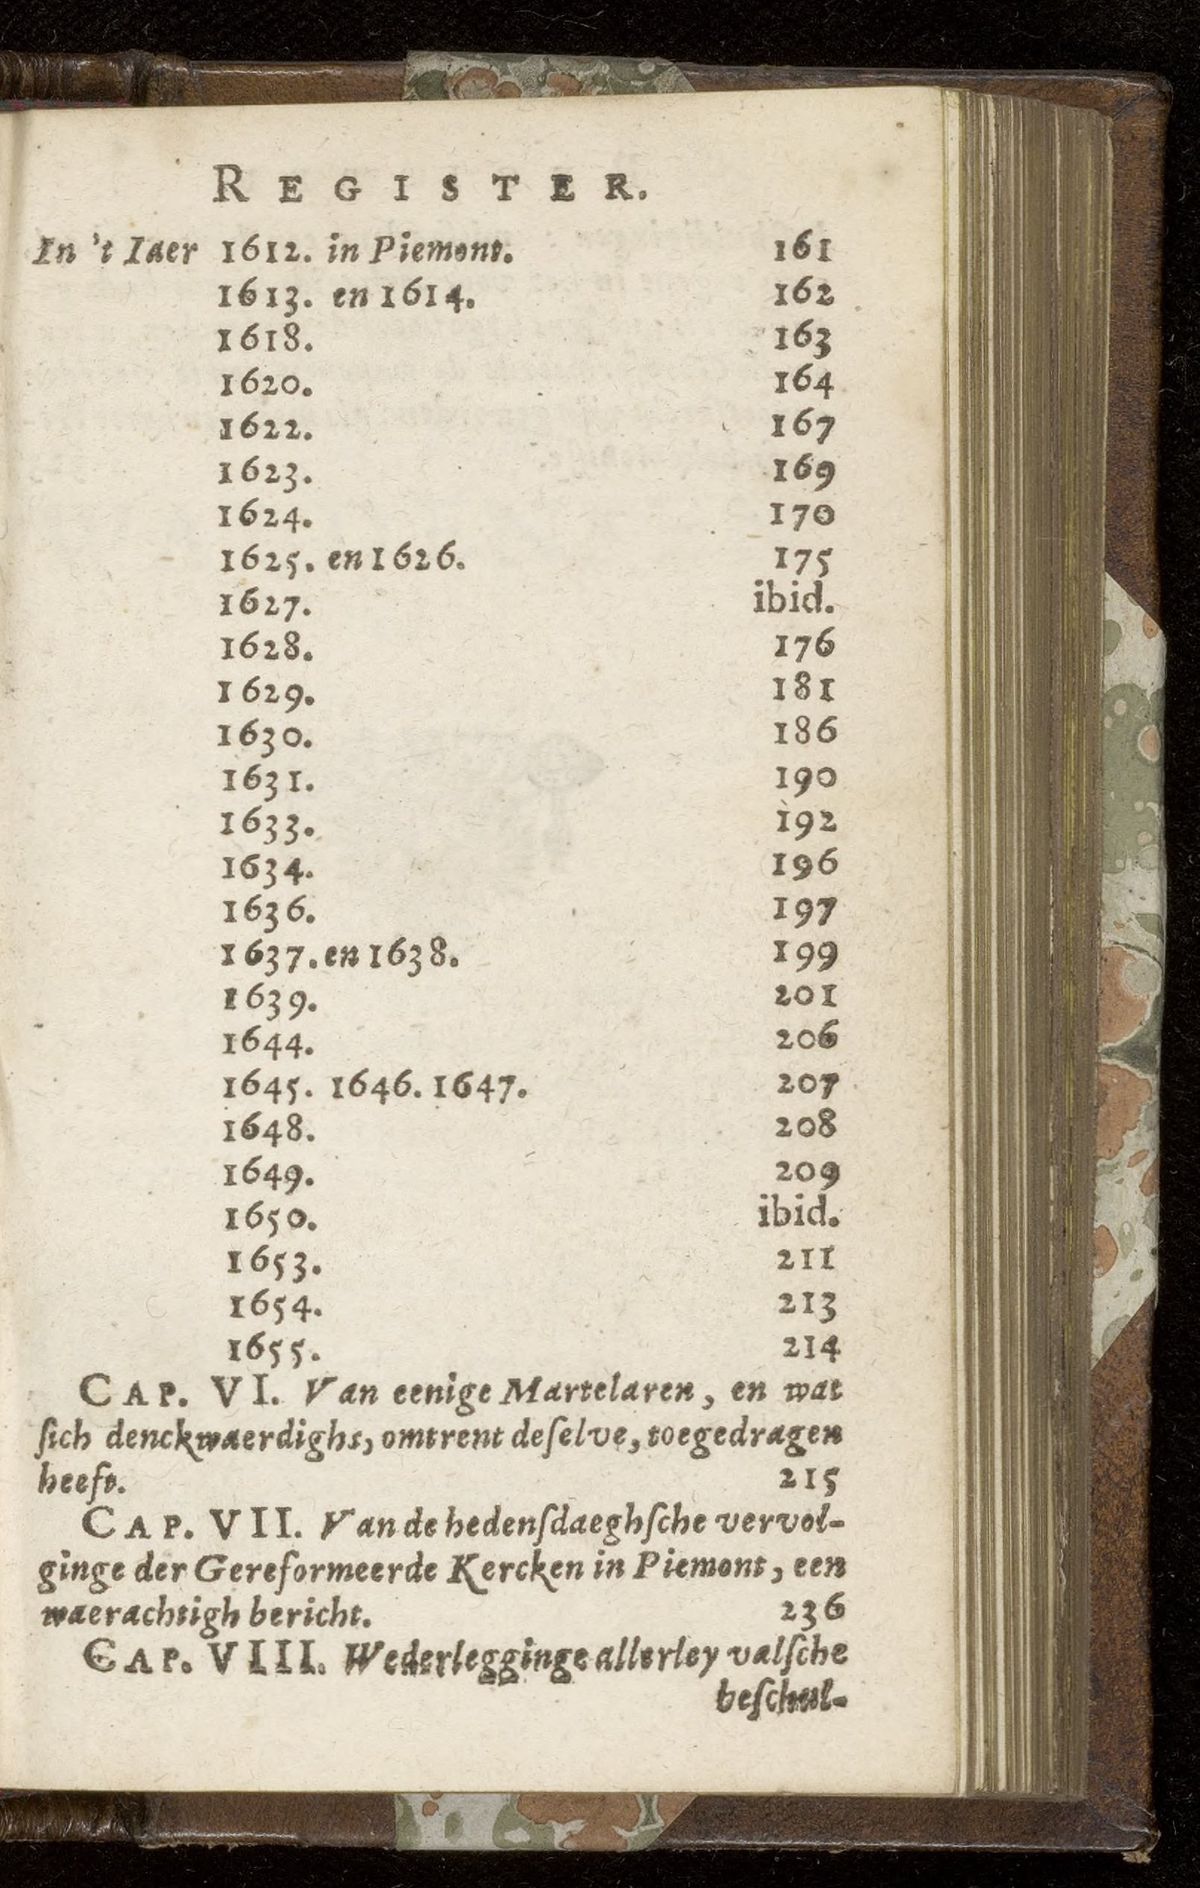 REGISTER.
In 't Iaer 1612. in Piemont. 161
1613. en 1614. 162
1618. 163
1620. 164
1622. 167
1623. 169
1624. 170
1625. en 1626. 175
1627. ibid.
1628. 176
1629. 181
1630. 186
1631. 190
1633. 192
1634. 196
1636. 197
1637. en 1638. 199
1639. 201
1644. 206
1645. 1646. 1647. 207
1648. 208
1649. 209
1650. ibid.
1653. 211
1654. 213
1655. 214
CAP. VI. Van eenige Martelaren, en wat
ſich denckwaerdighs, omtrent deſelve, toegedragen
heeft. 215
CAP. VII. Van de hedenſdaeghſche vervol-
ginge der Gereformeerde Kercken in Piemont, een
waerachtigh bericht. 236
CAP. VIII. Wederlegginge allerley valſche
beſchul-